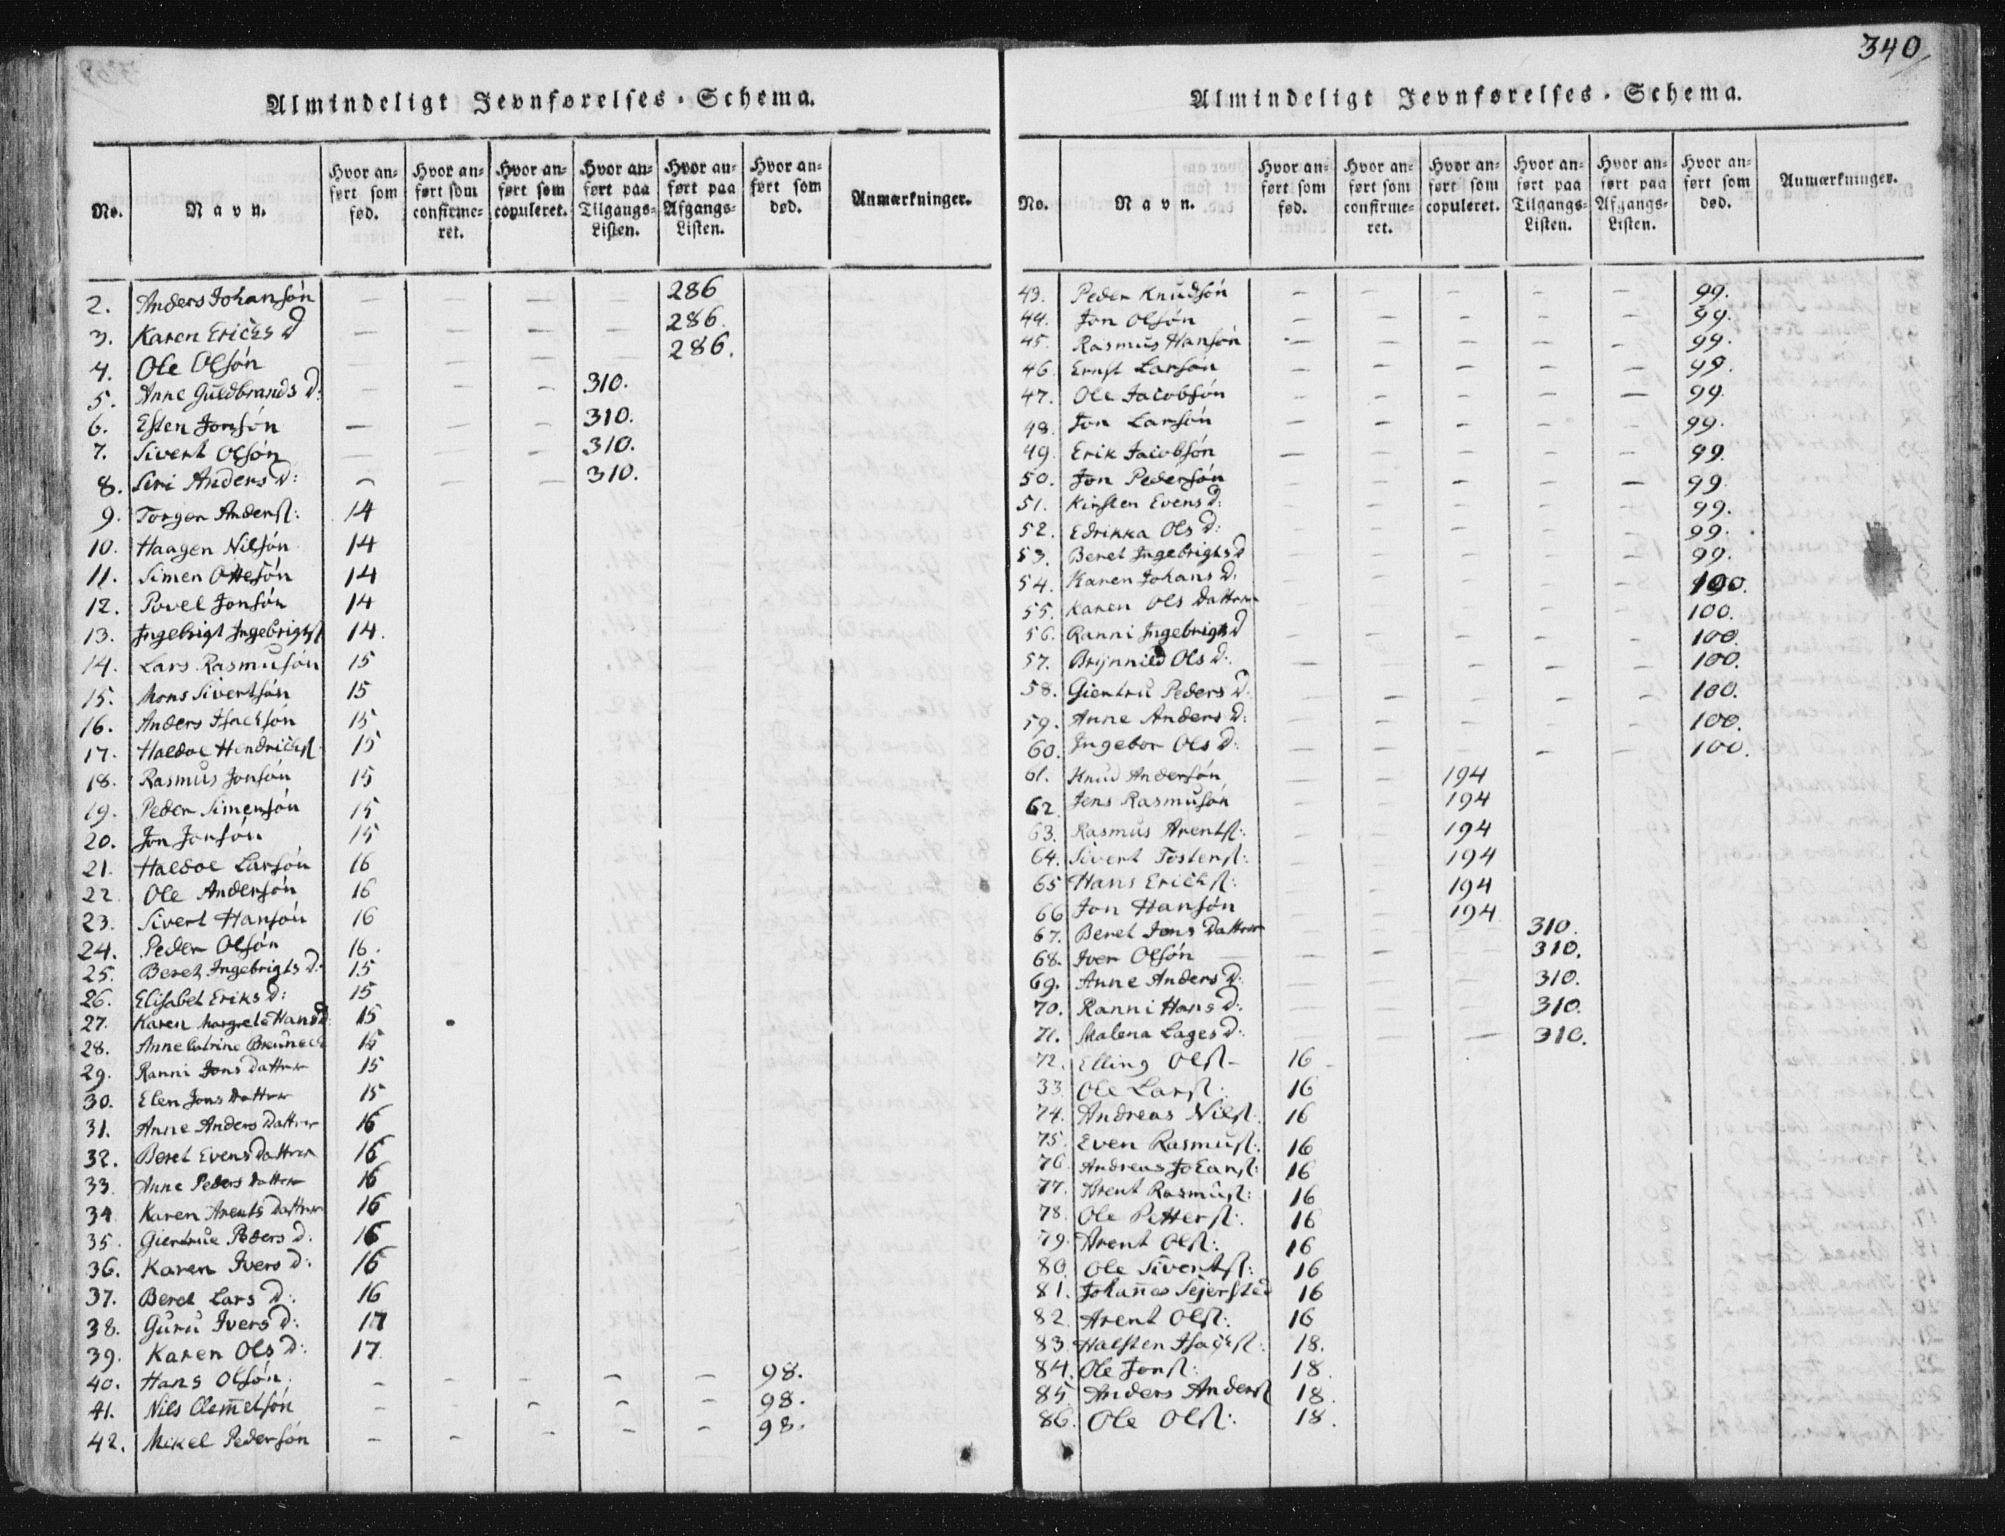 340
Almindeligt Jevnførelses-Schema.
No. Navn. Hvor anført som fød. Hvor anført som confirmeret. Hvor anført som copuleret. Hvor anført paa Tilgangs-Listen. Hvor anført paa Afgangs-Listen. Hvor anført som død. Anmærkninger.
2. Anders Johansøn — — — — 286
3. Karen Erichs D — — — — 286.
4. Ole Olsøn — — — — 286.
5. Anne Guldbrands D: — — — 310.
6. Esten Jonsøn — — — 310.
7. Sivert Olsøn — — — 310.
8. Siri Anders D: — — — 310.
9. Torger Anderss: 14
10. Haagen Nilsøn 14
11. Simen Ottesøn 14
12. Povel Jonsøn 14
13. Ingebrigt Ingebrigtss 14.
14. Lars Rasmusøn 15
15. Mons Sivertsøn 15
16. Anders Isachsøn 15
17. Haldoe Hendrichss 15
18. Rasmus Jonsøn 15
19. Peder Simensøn 15
20. Jon Jonsøn 15
21. Haldoe Larsøn 16
22. Ole Andersøn 16
23. Sivert Hansøn 16
24. Peder Olsøn 16.
25. Beret Ingebrigts D: 15
26. Elisabet Eriks D: 15
27. Karen Margrete Hans D: 15
28. Anne Catrine 15
29. Ranni Jons Datter 15
30. Elen Jons Datter 15
31. Anne Anders Datter 16
32. Beret Evens Datter 16
33. Anne Peders Datter 16
34 Karen Arents Datter 16
35. Giertrue Peders D. 16
36. Karen Ivers D: 16
37. Beret Lars D: 16
38. Guru Ivers D: 17
39. Karen Ols D: 17
40. Hans Olsøn. — — — — — 98.
41. Nils Clem̅etsøn — — — — — 98.
42. Mikel Pedersøn — — — — — 98.
Almindeligt Jevnførelses-Schema.
No. Navn. Hvor anført som fød. Hvor anført som confirmeret. Hvor anført som copuleret. Hvor anført paa Tilgangs-Listen. Hvor anført paa Afgangs-Listen. Hvor anført som død. Anmærkninger.
43. Peder Knudsøn — — — — — 99.
44. Jon Olsøn — — — — — 99.
45. Rasmus Hansøn — — — — — 99.
46. Ernst Larsøn — — — — — 99.
47. Ole Jacobsøn — — — — — 99.
48. Jon Larsøn — — — — — 99.
49. Erik Jacobsøn — — — — — 99.
50. Jon Pedersøn — — — — — 99.
51. Kirsten Evens D: — — — — — 99.
52. Edrikka Ols D: — — — — — 99.
53. Beret Ingebrigts D — — — — — 99.
54. Karen Johans D: — — — — — 100.
55. Karen Ols Datter — — — — — 100.
56. Ranni Ingebrigts D — — — — — 100.
57. Brynnild Ols D: — — — — — 100.
58. Giertru Peders D. — — — — — 100.
59. Anne Anders D: — — — — — 100.
60. Ingebor Ols D: — — — — — 100.
61. Knud Andersøn — — 194
62. Jens Rasmusøn — — 194
63. Rasmus Arentss: — — 194
64. Sivert Tosterss: — — 194
65 Hans Erichss: — — 194
66 Jon Hansøn — — 194
67. Beret Jons Datter — — — 310.
68. Iver Olsøn — — — 310.
69. Anne Anders D: — — — 310.
70. Ranni Hans D: — — — 310.
71. Malena Lages D: — — — 310.
72. Elling Olss — 16
33 Ole Larss: 16
74. Andreas Nilss: 16
75. Even Rasmuss: 16
76 Andreas Johanss: 16
77. Arent Rasmuss: 16
78. Ole Petterss: 16
79. Arent Olss: 16
80. Ole Sivertss: 16
81. Johan̅es Sejersted 16
82. Arent Olss: 16
83. Halsten Isachss: 18.
84. Ole Jonss: 18.
85 Anders Anderss 18.
86. Ole Olss: 18.